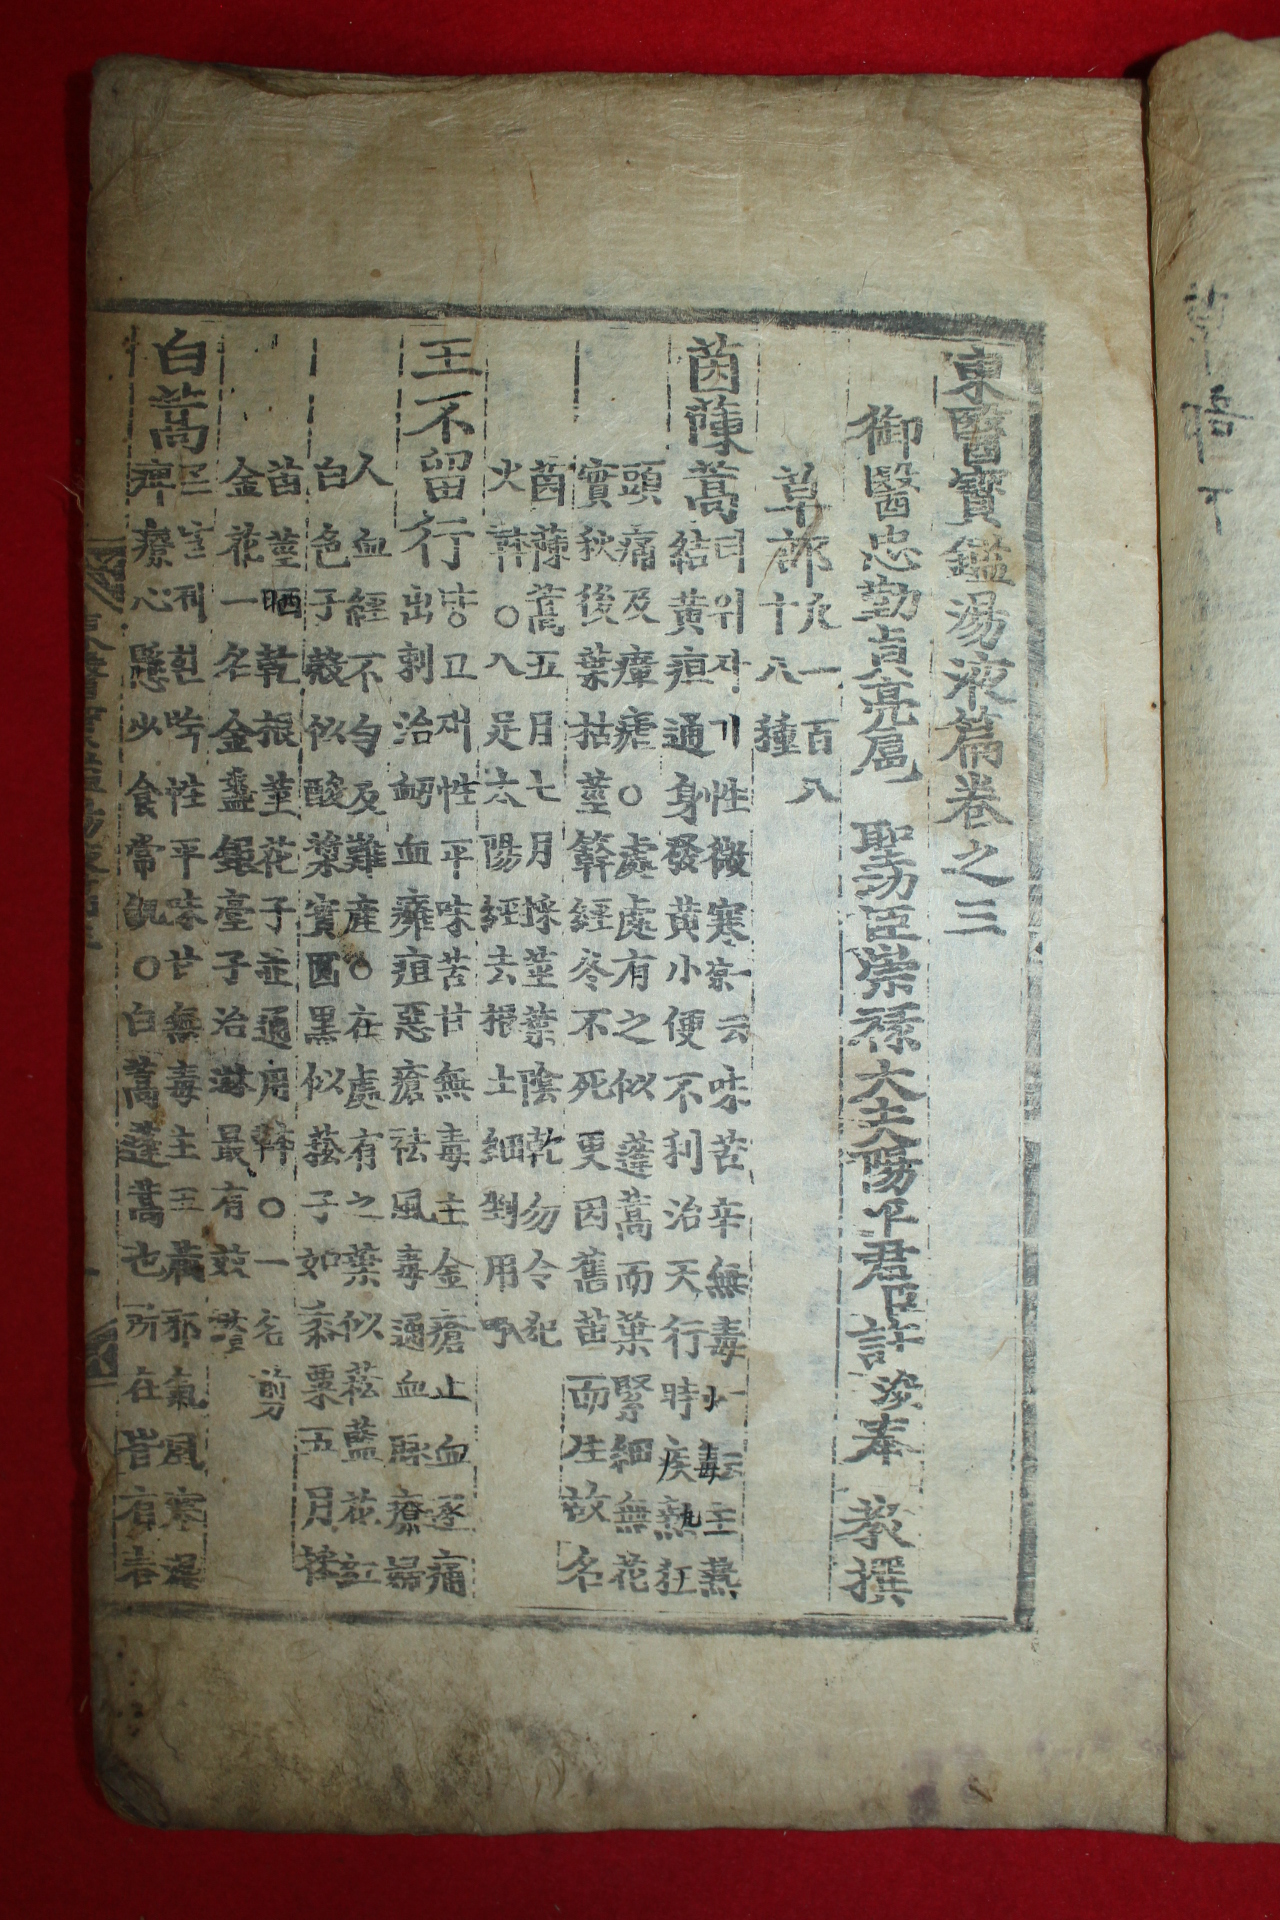 東醫寶鑑湯液篇卷之三
御醫忠勤貞亮扈聖功臣崇祿大夫陽平君臣許浚奉教撰
草部下凡一百八
十八種
茵蔯蒿
더위자기性微寒一云凉味苦辛無毒一云小毒主熱
結黃疸通身發黃小便不利治天行時疾熱狂
頭痛及瘴瘧○處處有之似蓬蒿而葉緊細無花
實秋後葉枯莖簳經冬不死更因舊苗而生故名
茵蔯蒿五月七月採莖葉陰乾勿令犯
火本草○入足太陽經去根土細剉用入門
王不留行
댱고재性平味苦甘無毒主金瘡止血逐痛
出刺治衄血癰疽惡瘡祛風毒通血脉療婦
人血經不勻及難產○在處有之葉似菘藍花紅
白色子殼似酸漿實圓黑似菘子如黍粟五月採
苗莖晒乾根莖花子並通用本草○一名剪
金花一名金盞銀臺子治淋最有效
白蒿
흰쑥性平味甘無毒主五藏邪氣風寒濕
痺療心懸少食常飢○白蒿蓬蒿也所在皆有春